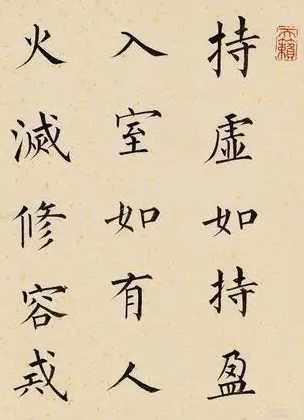 天籟
持虚如持盈
入室如有人
火滅修容戒